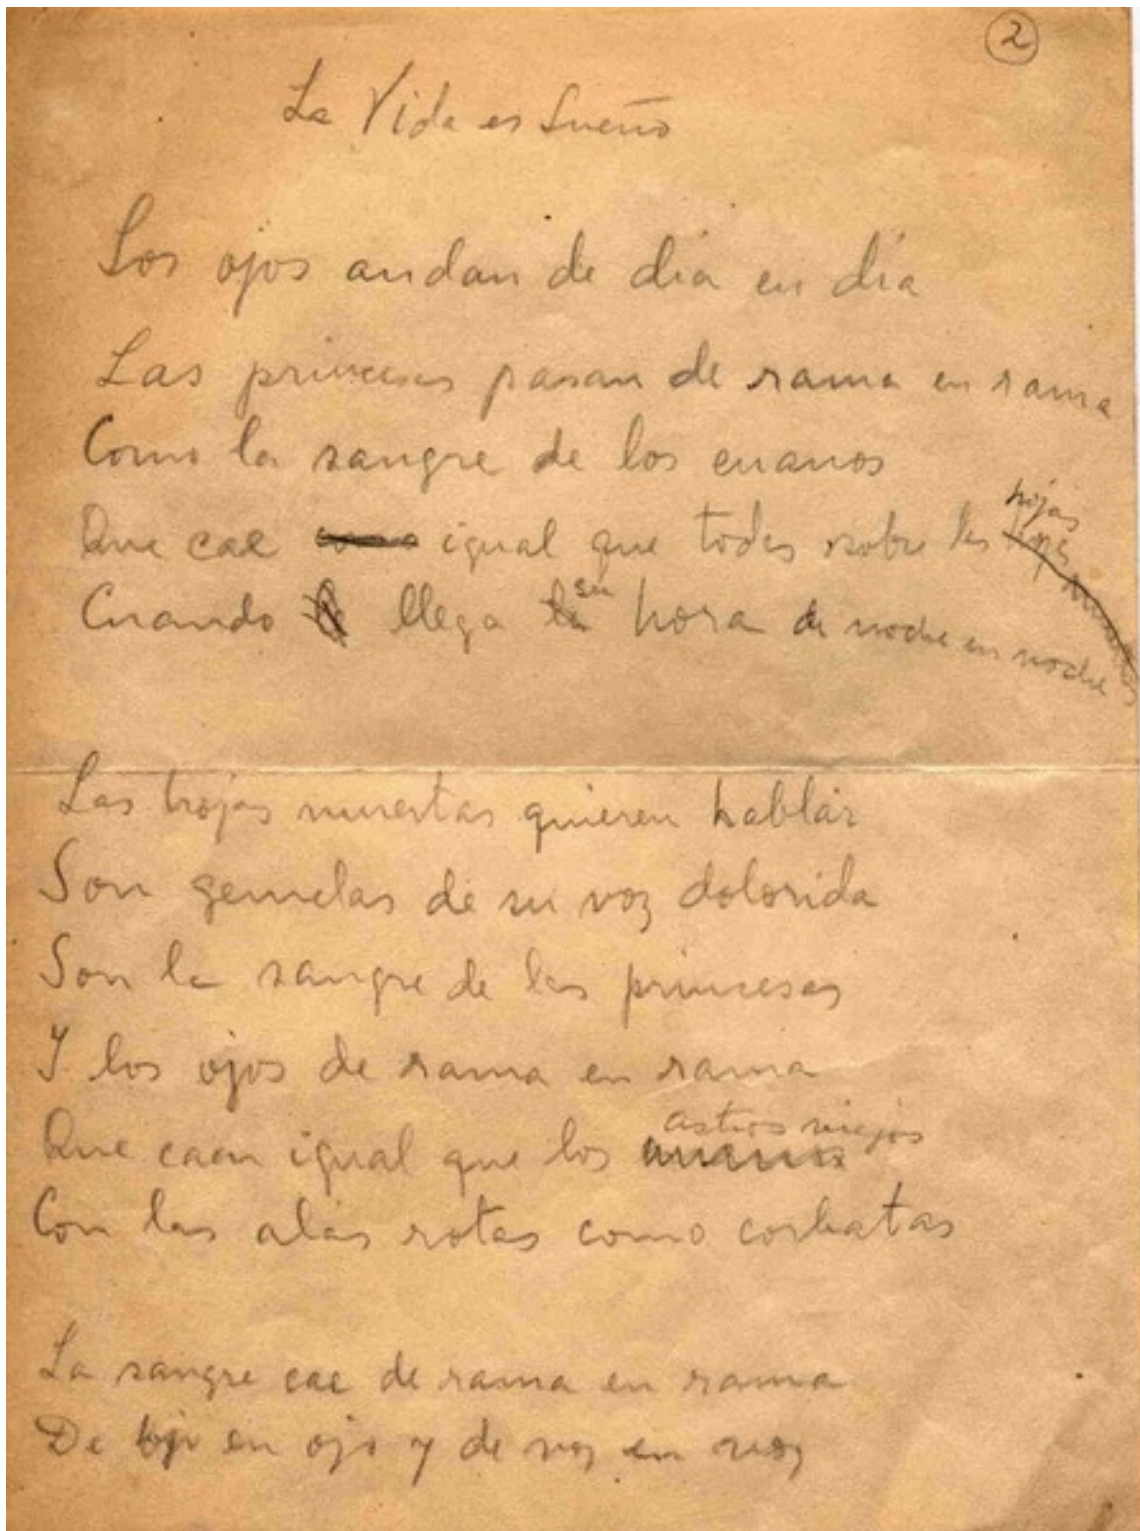 2
La Vida es Sueño
Los ojos andan de día en día
Las princesas pasan de rama en rama
Como la sangre de los enanos
hojas
Que cae como igual que todas sobre las hojas muertas
su
Cuando llega la hora de noche en noche
Las hojas muertas quieren hablar
Son gemelas de su voz dolorida
Son la sangre de las princesas
Y los ojos de rama en rama
astros viejos
Que caen igual que los enanos
Con las alas rotas como corbatas
La sangre cae de rama en rama
De ojo en ojo y de voz en voz